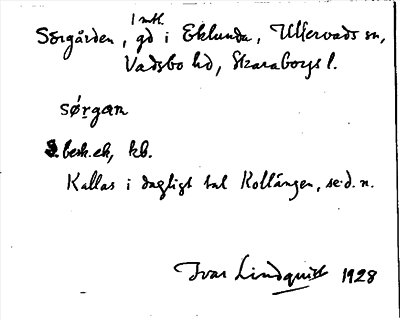 1 mtl.
Sörgården, gd i Eklunda, Ullervads sn,
Vadsbo hd, Skaraborgs l.
sø̀rgαm
besk. ek, kb.
Kallas i dagligt tal Kollängen, se d. n.
Ivar Lindquist 1928